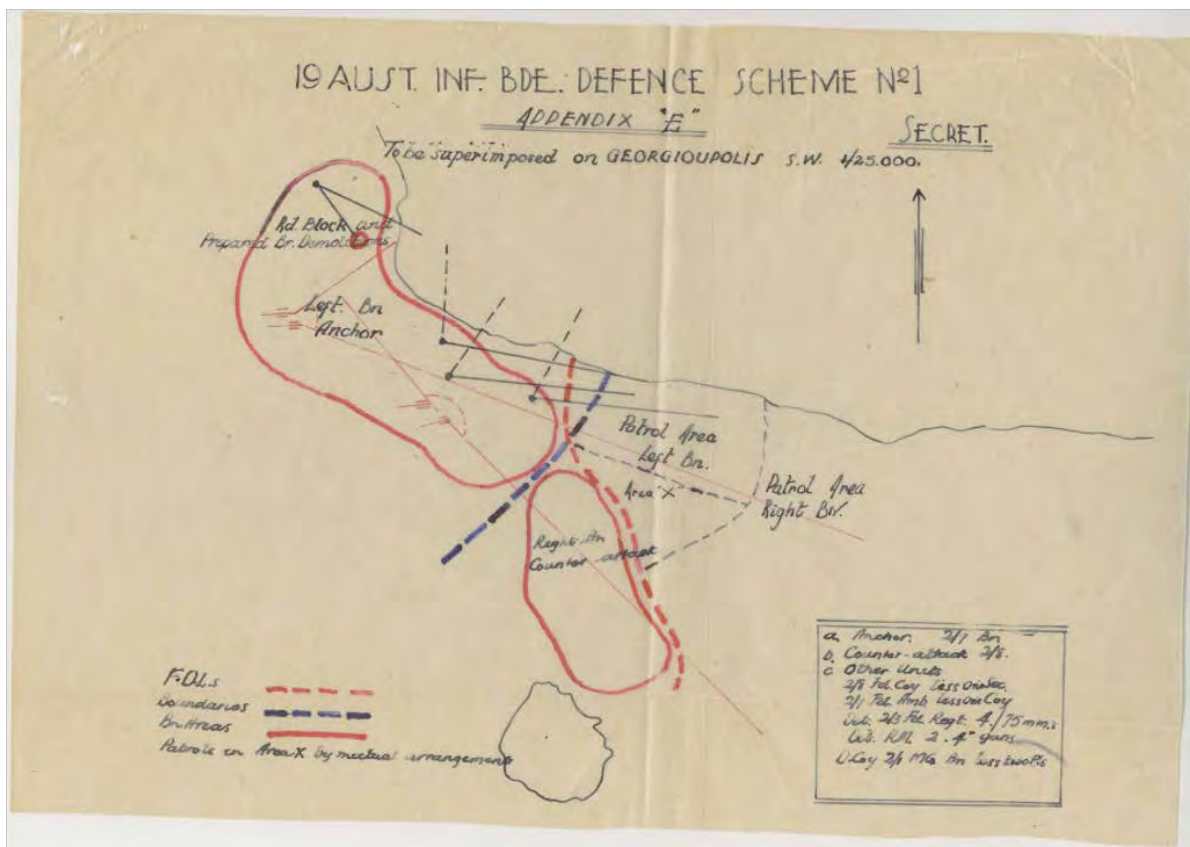 19 AUST. INF. BDE. DEFENCE SCHEME Nº1
APPENDIX "E"
SECRET.
To be superimposed on GEORGIOUPOLIS S.W. 1/25.000.
Rd. Block and
Prepared Br. Demolitions
Left. Bn
Anchor
Patrol Area
Left Bn.
Area X
Patrol Area
Right Bn.
Right Bn
Counter-attack
F.D.L.s
Boundaries
Bn Areas
Patrols in Area X by mutual arrangement
a. Anchor 2/7 Bn
b. Counter-attack 2/8.
c Other Units
2/8 Fd. Coy less One Sec.
2/1 Fd. Amb less One Coy
Det. 2/3 Fd. Regt. 4./75mm.s
Det. RM. 2. 4" guns
D Coy 2/1 MG Bn less two Pls